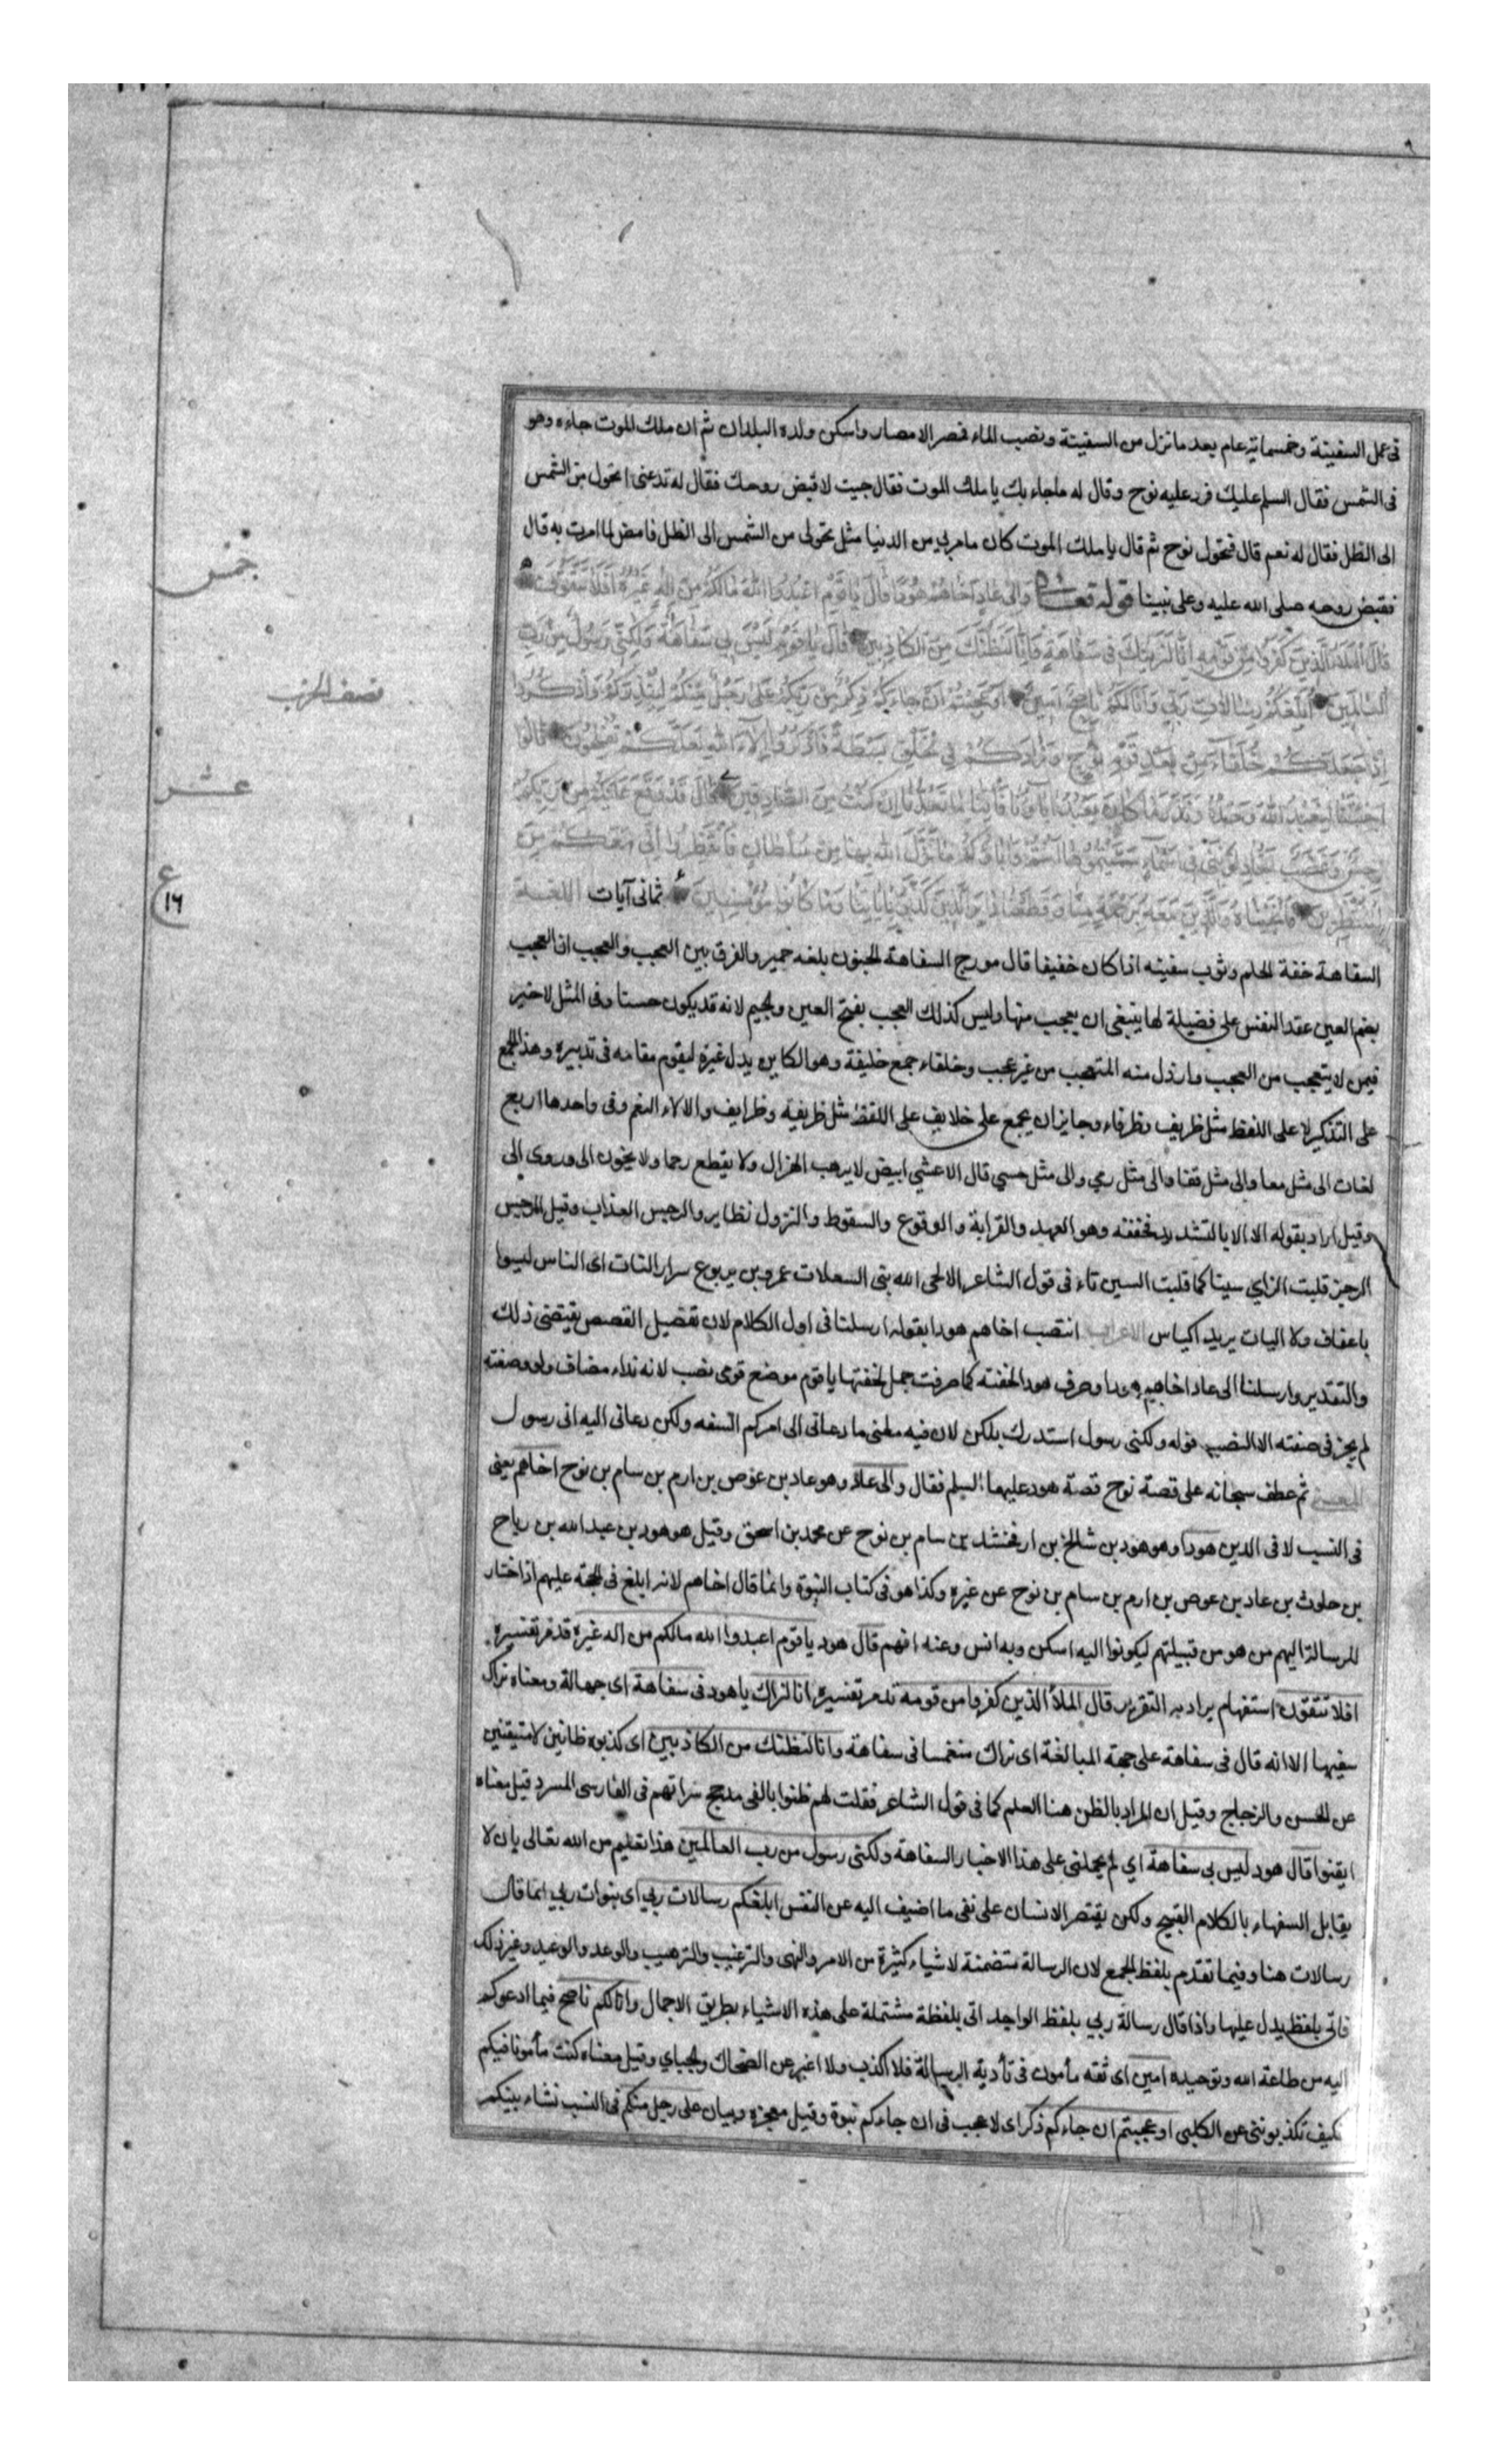 فى عمل السفينة وخمسماية عام بعد ما نزل من السفينة ونضب الماء فمصر الامصار واسكن ولده البلدان ثم ان ملك الموت جاءه وهو
فى الشمس فقال السلم عليك فرد عليه نوح وقال له ما جاء بك يا ملك الموت فقال جيت لاقبض روحك فقال له تدعنى اتحول من الشمس
الى الظل فقال له نعم قال فتحول نوح ثم قال يا ملك الموت كان ما مر بي من الدنيا مثل تحولى من الشمس الى الظل فامض لما امرت به قال
فقبض روحه صلى الله عليه وعلى نبينا قوله تعالى وَاِلى عَادٍ اَخَاهُمْ هُودًا قَالَ يَا قَوْمِ اعْبُدُوا اللهَ مَا لَكُمْ مِنْ اِلهٍ غَيْرُهُ اَفَلَا تَتَّقُونَ
قَالَ الْمَلَاُ الَّذِينَ كَفَرُوا مِنْ قَوْمِهِ اِنَّا لَنَرَيكَ فِى سَفَاهَةٍ وَاِنَّا لَنَظُنُّكَ مِنَ الْكَاذِبِينَ قَالَ يَا قَوْمِ لَيْسَ بِى سَفَاهَةٌ وَلكِنِّى رَسُولٌ مِنْ رَبِّ
الْعَالَمِينَ اُبَلِّغُكُمْ رِسَالَاتِ رَبِّى وَاَنَا لَكُمْ نَاصِحٌ اَمِينٌ اَوَعَجِبْتُمْ اَنْ جَاءَكُمْ ذِكْرٌ مِنْ رَبِّكُمْ عَلَى رَجُلٍ مِنْكُمْ لِيُنْذِرَكُمْ وَاذْكُرُوا
اِذْ جَعَلَكُمْ خُلَفَاءَ مِنْ بَعْدِ قَوْمِ نُوحٍ وَزَادَكُمْ فِى الْخَلْقِ بَسْطَةً فَاذْكُرُوا آلَاءَ اللهِ لَعَلَّكُمْ تُفْلِحُونَ قَالُوا
اَجِئْتَنَا لِنَعْبُدَ اللهَ وَحْدَهُ وَنَذَرَ مَا كَانَ يَعْبُدُ آبَاؤُنَا فَأْتِنَا بِمَا تَعِدُنَا اِنْ كُنْتَ مِنَ الصَّادِقِينَ قَالَ قَدْ وَقَعَ عَلَيْكُمْ مِنْ رَبِّكُمْ
رِجْسٌ وَغَضَبٌ اَتُجَادِلُونَنِى فِى اَسْمَاءٍ سَمَّيْتُمُوهَا اَنْتُمْ وَآبَاؤُكُمْ مَا نَزَّلَ اللهُ بِهَا مِنْ سُلْطَانٍ فَانْتَظِرُوا اِنِّى مَعَكُمْ مِنَ
الْمُنْتَظِرِينَ فَاَنْجَيْنَاهُ وَالَّذِينَ مَعَهُ بِرَحْمَةٍ مِنَّا وَقَطَعْنَا دَابِرَ الَّذِينَ كَذَّبُوا بِآيَاتِنَا وَمَا كَانُوا مُؤْمِنِينَ ثمانى آيات اللغة
السفاهة خفة الحلم وثوب سفيه اذا كان خفيفا قال مورج السفاهة الجنون بلغه حمير والفرق بين العجب والعجب ان العجب
بضم العين عقد النفس على فضيلة لها ينبغى ان يعجب منها وليس كذلك العجب بفتح العين والجيم لانه قد يكون حسنا وفى المثل لا خير
فيمن لا يتعجب من العجب وارذل منه المتعجب من غير عجب وخلفاء جمع خليفة وهو الكاين بدل غيره ليقوم مقامه فى تدبيره وهذا الجمع
على التذكير لا على اللفظ مثل ظريف وظرفاء وجايز ان يجمع على خلايف على اللفظ مثل ظريفة وظرايف والالاء النعم وفى واحدها اربع
لغات الى مثل معا والى مثل قفا والى مثل رمي والى مثل حسي قال الاعشي ابيض لا يرهب الهزال ولا يقطع رحما ولا يخون الى وروى إلى
وقيل اراد بقوله الا الا بالتشديد فخففه وهو العهد والقرابة والوقوع والسقوط والنزول نظاير والرجس العذاب وقيل الرجس
الرجز قلبت الزاي سينا كما قلبت السين تاء فى قول الشاعر الا لحى الله بنى السعلات عمرو بن يربوع شرار النات اى الناس ليسوا
باعفاف ولا اكيات يريد اكياس الاعراب انتصب اخاهم هودا بقوله ارسلنا فى اول الكلام لان تفصيل القصص يقتضى ذلك
والتقدير وارسلنا الى عاد اخاهم هودا وصرف هود لخفته كما صرفت جمل لخفتها يا قوم موضع قومى نصب لانه نداء مضاف ولو وصفته
لم يجز فى صفته الا النصب قوله ولكنى رسول استدرك بلكن لان فيه معنى ما دعانى الى امركم السفه ولكن دعانى اليه انى رسول
المعنى ثم عطف سبحانه على قصة نوح قصة هود عليهما السلم فقال والى عاد وهو عاد بن عوص بن ارم بن سام بن نوح اخاهم يعنى
فى النسب لا فى الدين هودا وهو هود بن شالخ بن ارفخشد بن سام بن نوح عن محمد بن اسحق وقيل هو هود بن عبد الله بن رياح
بن حلوث بن عاد بن عوص بن ارم بن سام بن نوح عن غيره وكذا هو فى كتاب النبوة وانما قال اخاهم لانه ابلغ فى الحجة عليهم اذا اختار
للرسالة اليهم من هو من قبيلتهم ليكونوا اليه اسكن وبه انس وعنه افهم قال هود يا قوم اعبدوا الله مالكم من اله غيره قد مر تفسيره
افلا تتقون استفهام يراد به التقرير قال الملأ الذين كفروا من قومه قد مر تفسيره انا لنراك يا هود فى سفاهة اى جهالة ومعناه نراك
سفيها الا انه قال فى سفاهة على جهة المبالغة اى نراك منغمسا فى سفاهة وانا لنظنك من الكاذبين اى كذبوه ظانين لا متيقنين
عن الحسن والزجاج وقيل ان المراد بالظن هنا العلم كما فى قول الشاعر فقلت لهم ظنوا بالفى مدجج سراتهم فى الفارسى المسرد قيل معناه
ايقنوا قال هود ليس بى سفاهة اي لم يحملنى على هذا الاخبار السفاهة ولكنى رسول من رب العالمين هذا تعليم من الله تعالى بان لا
يقابل السفهاء بالكلام القبيح ولكن يقتصر الانسان على نفى ما اضيف اليه عن النفس ابلغكم رسالات ربي اى بنبوات ربي انما قال
رسالات هنا وفيما تقدم بلفظ الجمع لان الرسالة متضمنة لاشياء كثيرة من الامر والنهى والترغيب والترهيب والوعد والوعيد وغير ذلك
فاتى بلفظ يدل عليها واذا قال رسالة ربي بلفظ الواحد اتى بلفظة مشتملة على هذه الاشياء بطريق الاجمال وانا لكم ناصح فيما ادعوكم
اليه من طاعة الله وتوحيده امين اى ثقه مأمون فى تأدية الرسالة فلا اكذب ولا اغير عن الضحاك والجباي وقيل معناه كنت مأمونا فيكم
فكيف تكذبوننى عن الكلبى اوعجبتم ان جاءكم ذكر اى لا عجب فى ان جاءكم نبوة وقيل معجزه وبيان على رجل منكم فى النسب نشاء بينكم
خمس
نصف الحزب
عشر
ع
١٦